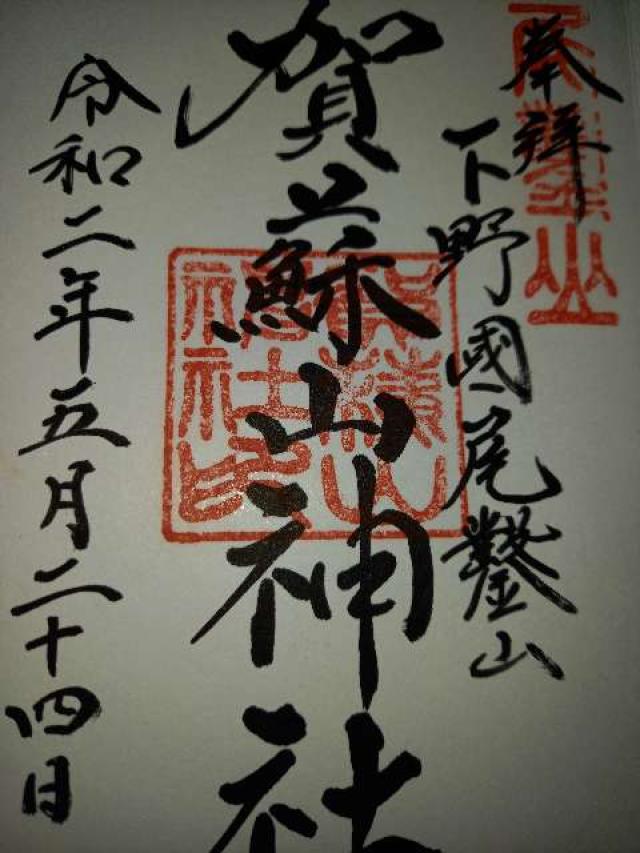 奉拝
下野國尾鑿山
賀蘓山神社
令和二年五月二十四日
尾鑿山
賀蘓山神社印